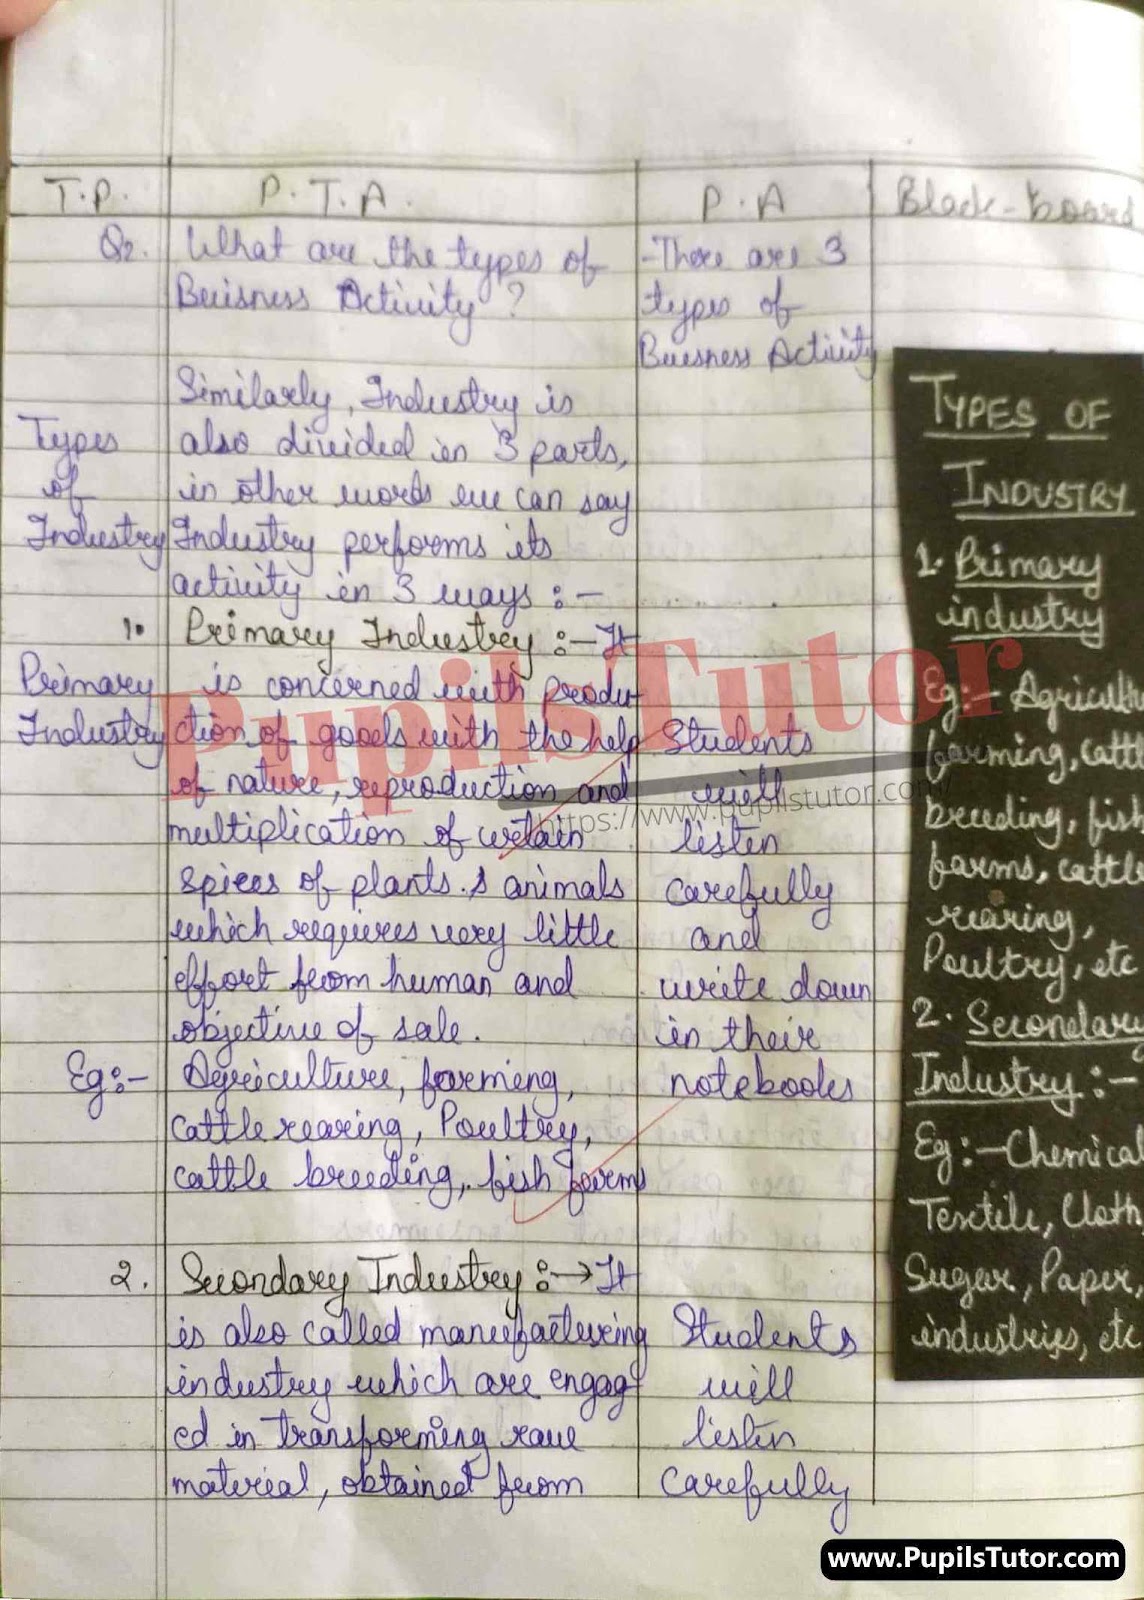 T.P.
P.T.A.
P.A
Black-board
Q2.
What are the types of
Buisness Activity ?
-There are 3
types of
Buisness Activity
Types
of
Industry
Similarly, Industry is
also divided in 3 parts,
in other words we can say
Industry performs its
activity in 3 ways :-
1.
Primary Industry :- It
Primary
Industry
is concerned with produ-
ction of goods with the help
of nature, reproduction and
multiplication of certain
spices of plants & animals
which requires very little
effort from human and
objective of sale.
Students
will
listen
carefully
and
write down
in their
notebooks
Eg:-
Agriculture, farming,
cattle rearing, Poultry,
cattle breeding, fish farms
2.
Secondary Industry :→ It
is also called manufacturing
industry which are engag-
ed in transforming raw
material, obtained from
Students
will
listen
carefully
TYPES OF
INDUSTRY
1. Primary
industry
Eg:- Agricultu
farming, cattl
breeding, fish
farms, cattle
rearing,
Poultry, etc
2. Secondary
Industry :-
Eg:- Chemical
Textile, Cloth
Sugar, Paper,
industries, etc
PupilsTutor
https://www.pupilstutor.com/
www.PupilsTutor.com